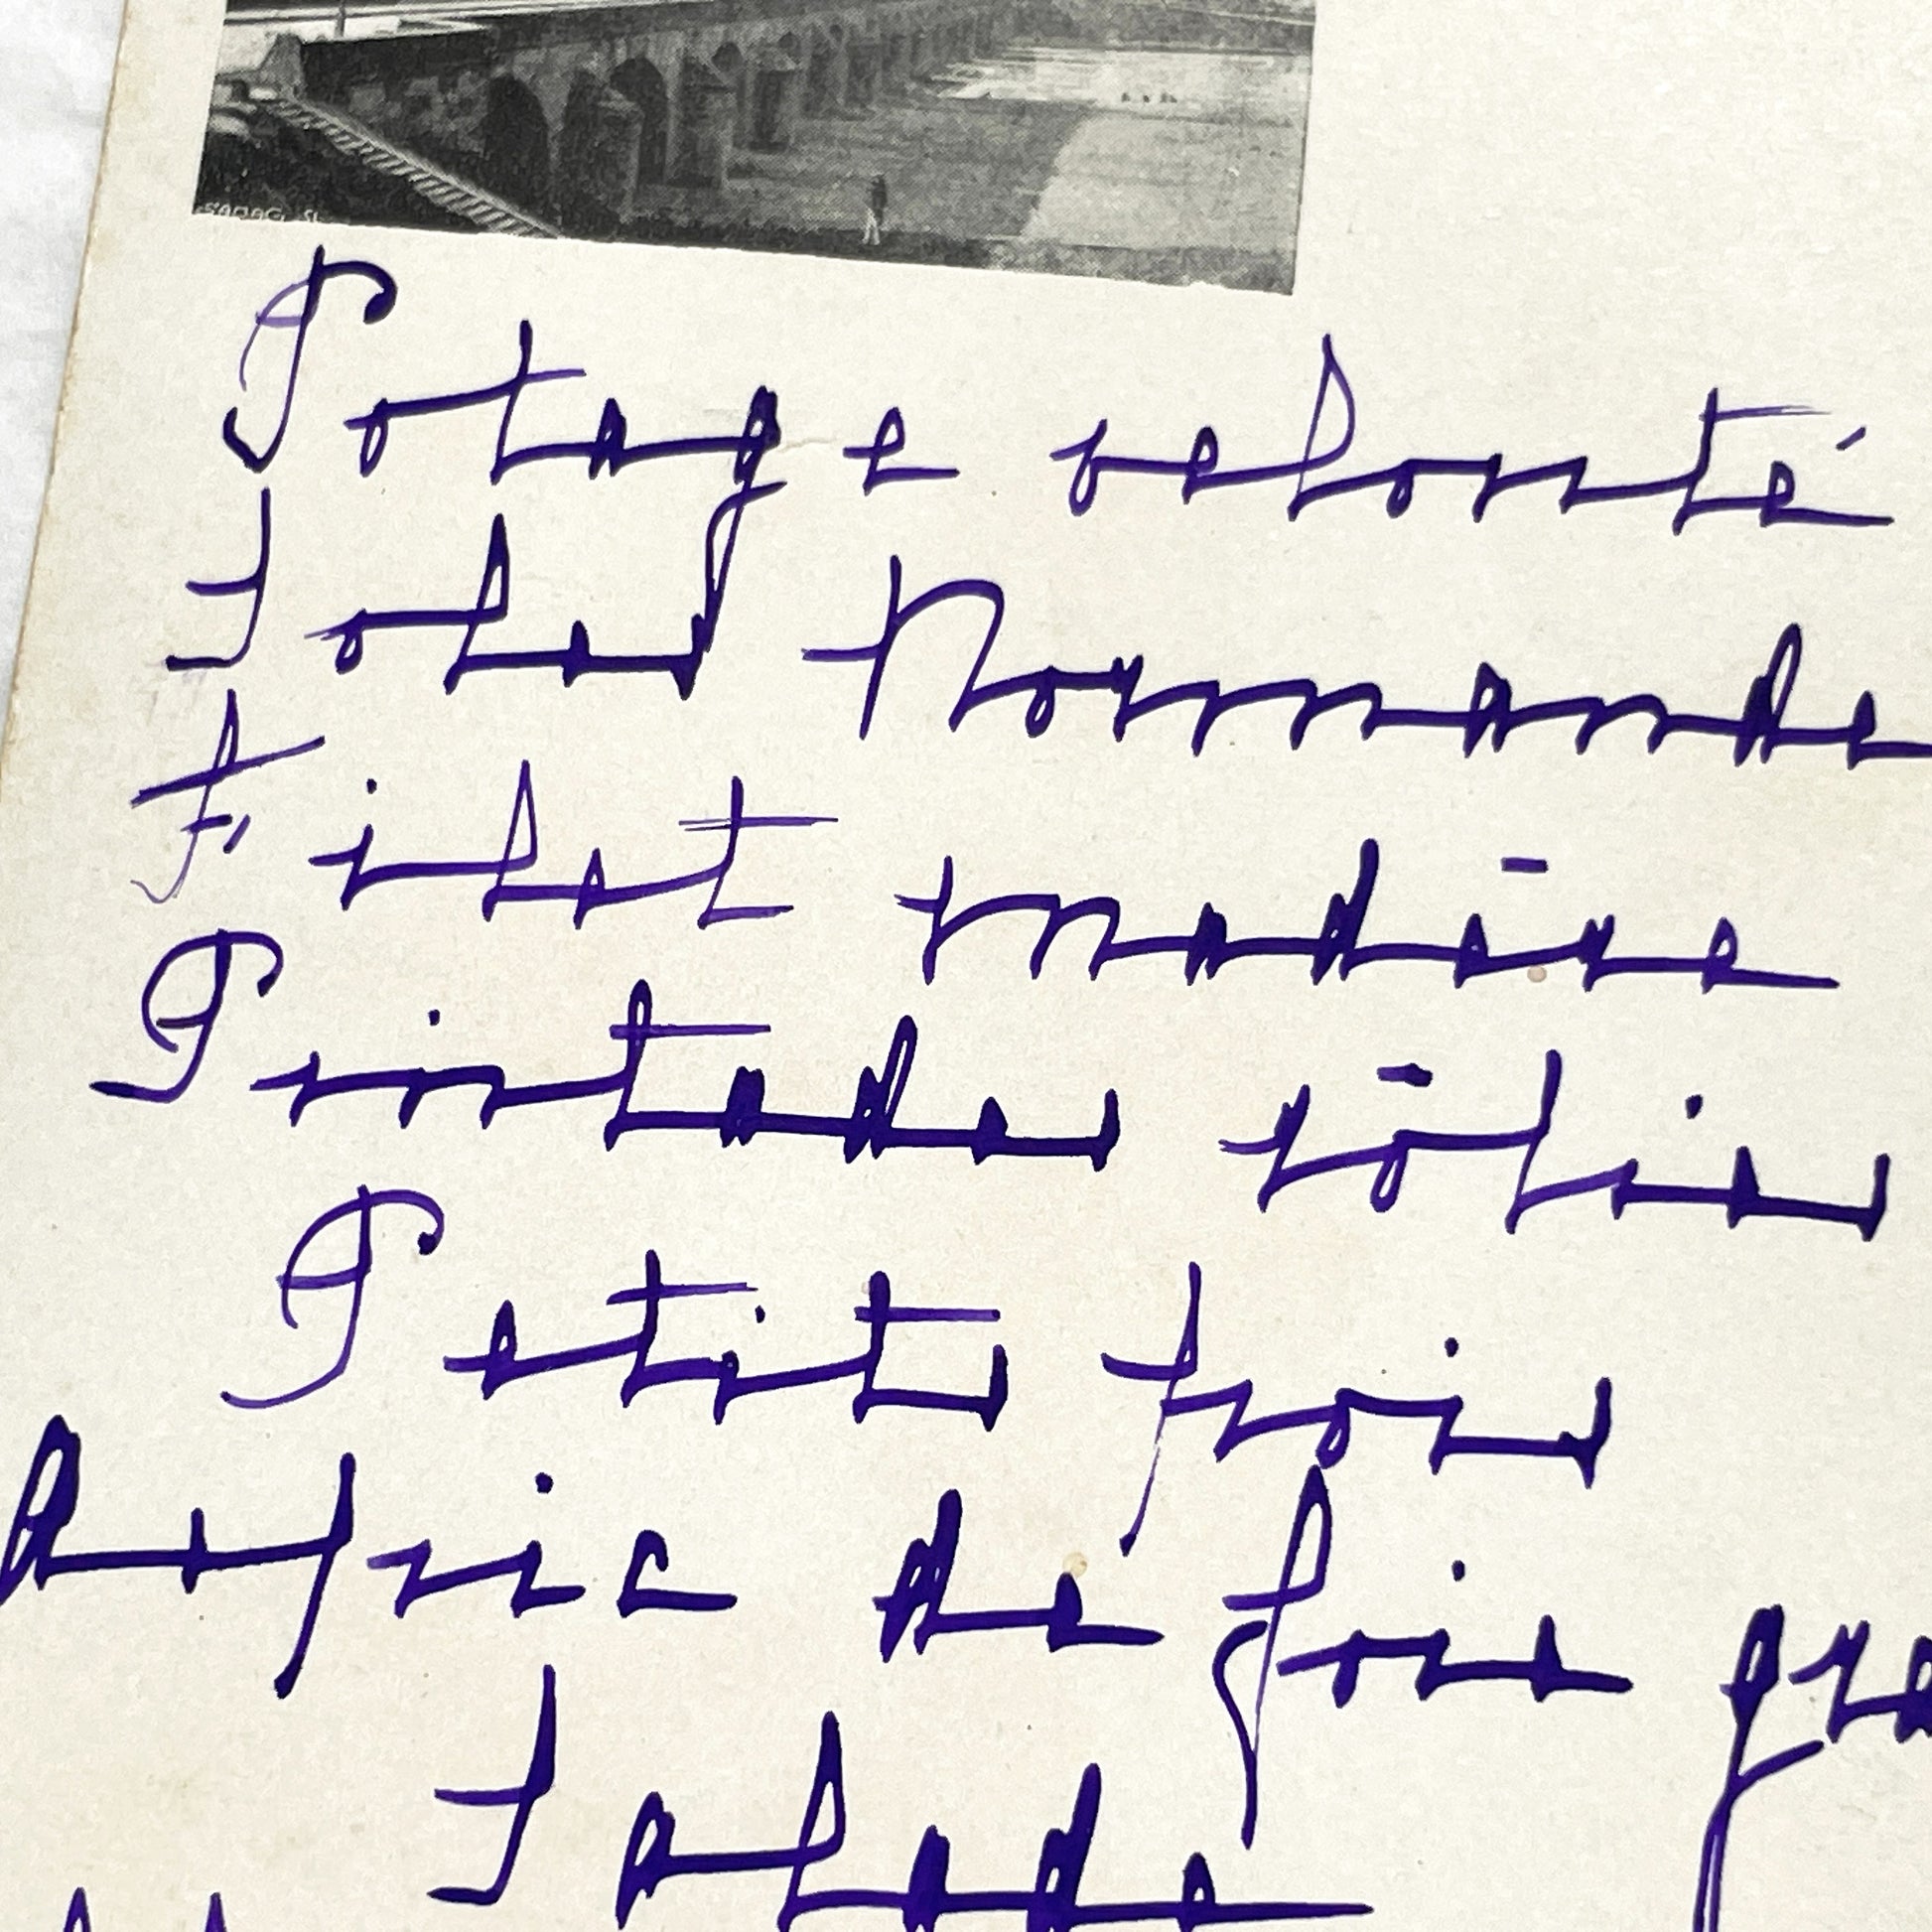 Potage velouté
Soles Normande
Filet madère
Pintades rôties
Petits pois
Aspic de foie gra
Salade